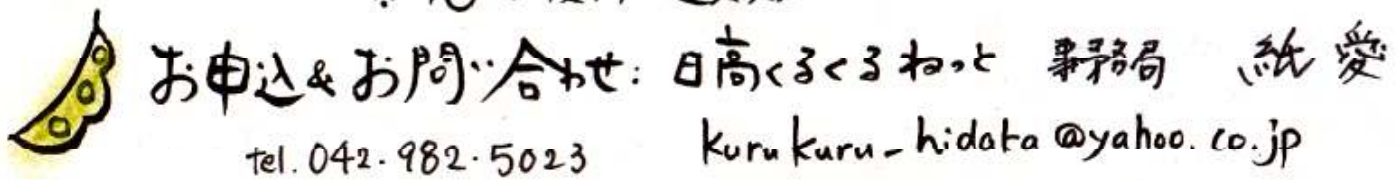 お申込&お問い合わせ: 日高くるくるねっと 事務局 紙 愛
tel. 042-982-5023 kurukuru_hidaka@yahoo.co.jp